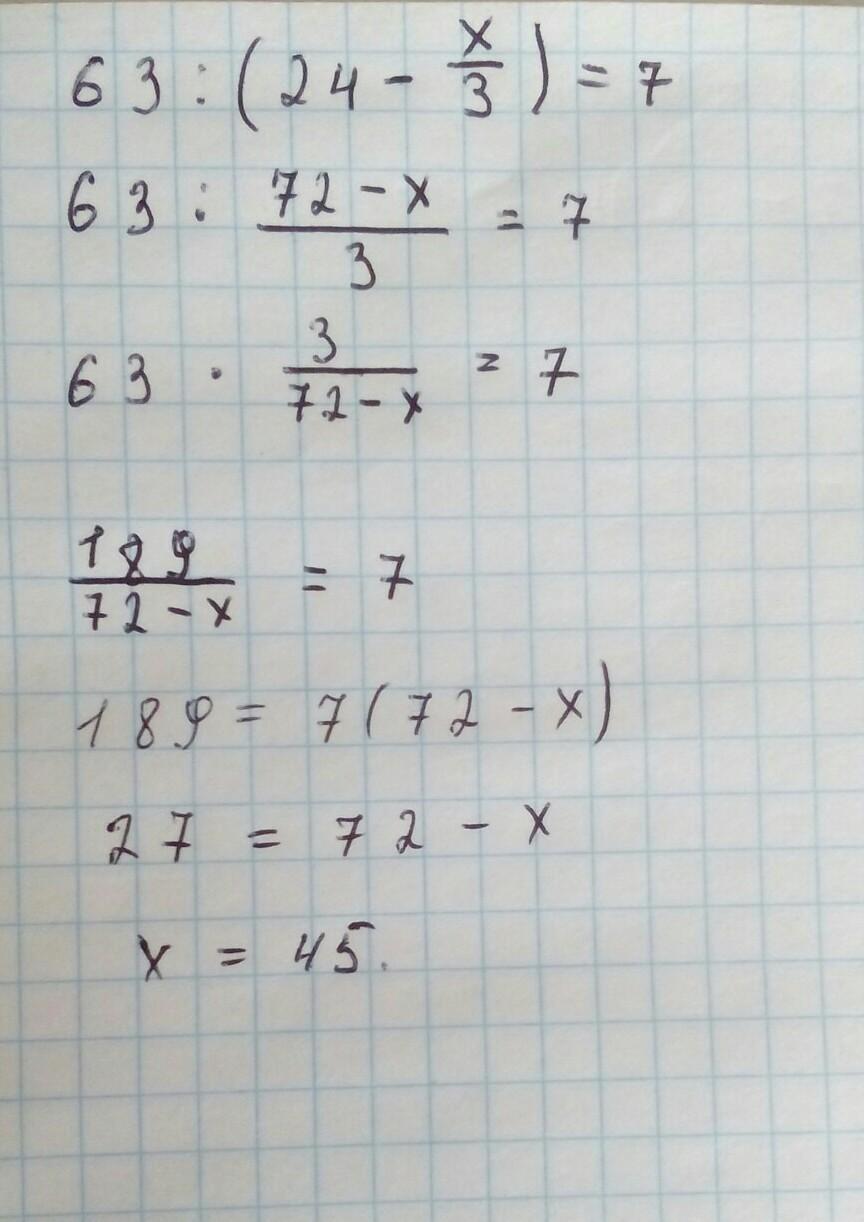 63 : (24 - x/3) = 7
63 : (72 - x)/3 = 7
63 · 3/(72 - x) = 7
189/(72 - x) = 7
189 = 7(72 - x)
27 = 72 - x
x = 45.